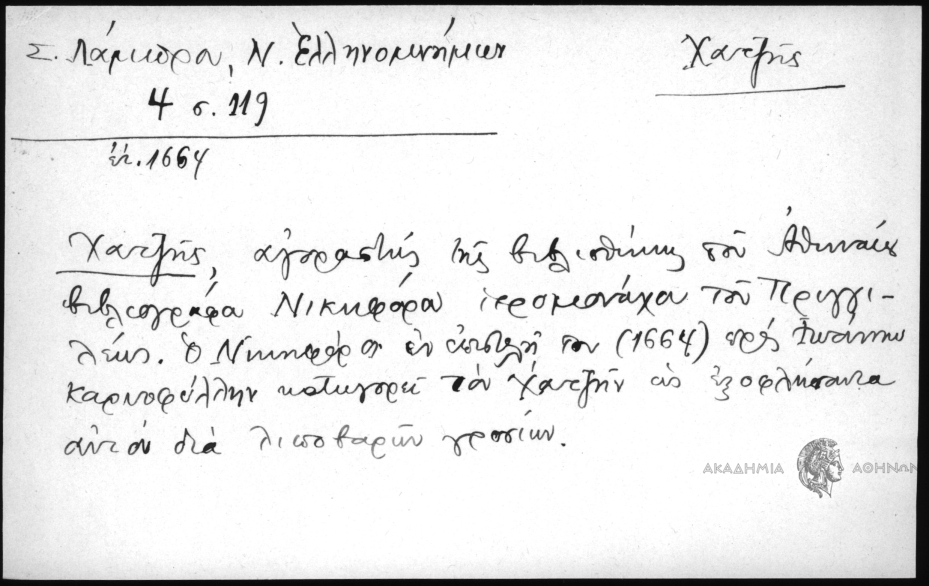 Σ. Λάμπρου, Ν. Ἑλληνομνήμων
Χατζῆς
4 σ. 119
ἔτ. 1664
Χατζῆς, ἀγοραστής τῆς βιβλιοθήκης τοῦ Ἀθηναίου
βιβλιογράφου Νικηφόρου ἱερομονάχου τοῦ Πριγγι-
λέως. Ὁ Νικηφόρος ἐν ἐπιστολῇ του (1664) πρός Ἰωάννην
Καρυοφύλλην κατηγορεῖ τὸν Χατζῆν ὡς ἐξοφλήσαντα
αὐτόν διά λιποβαρῶν γροσίων.
ΑΚΑΔΗΜΙΑ ΑΘΗΝΩΝ